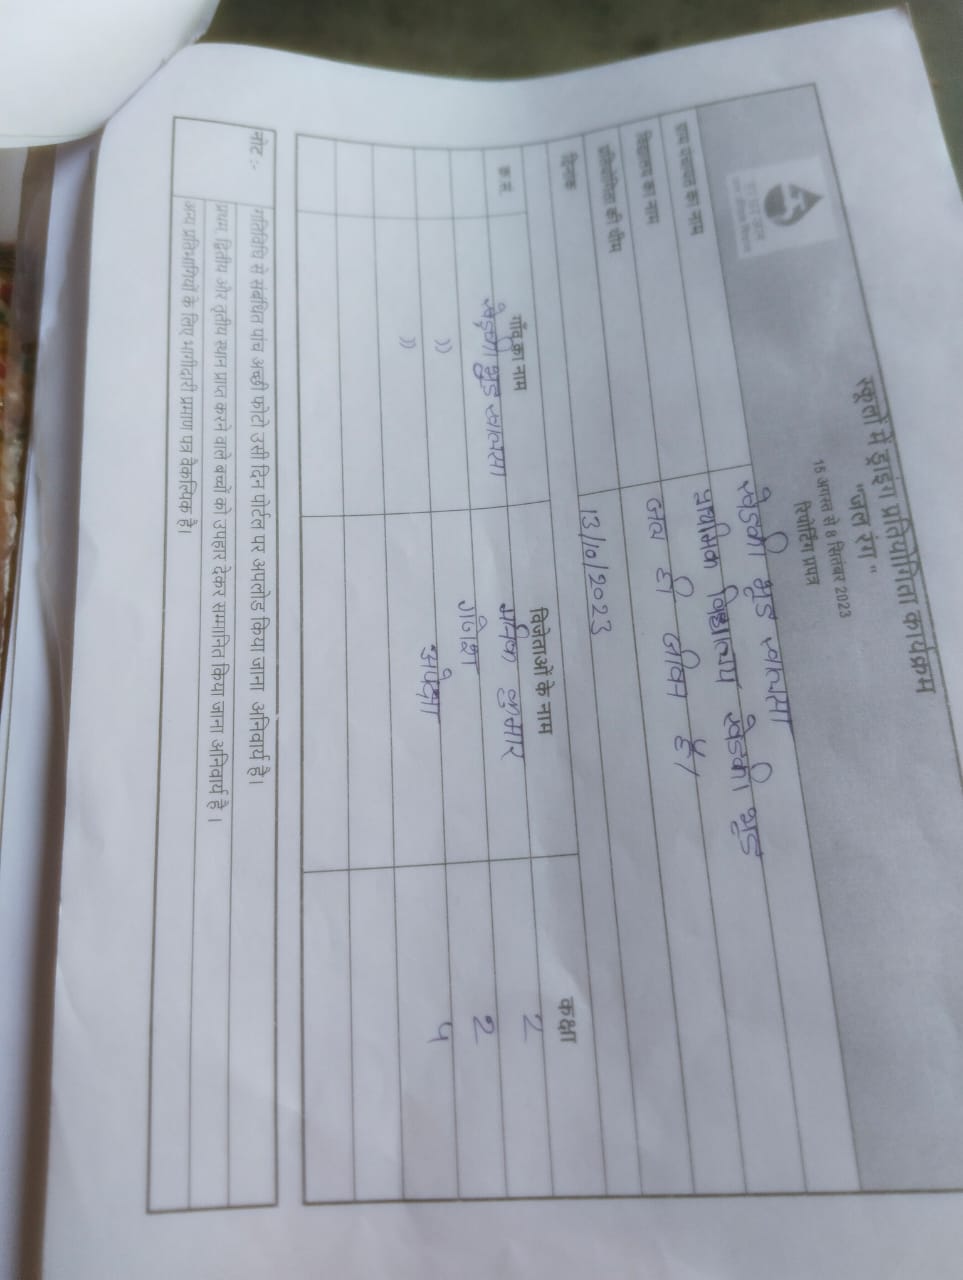 स्कूलों में ड्राइंग प्रतियोगिता कार्यक्रम
"जल रंग"
15 अगस्त से 8 सितंबर 2023
रिपोर्टिंग प्रपत्र
ग्राम पंचायत का नाम खेड़की भुड खालसा
विद्यालय का नाम प्राथमिक विद्यालय खेड़की भुड
प्रतियोगिता की थीम जल ही जीवन है।
दिनांक 13/10/2023
क्र.सं. गाँव का नाम विजेताओं के नाम कक्षा
खेड़की भुड खालसा कुमार 2
)) गणेश 2
)) अपेक्षा ५
नोट :- गतिविधि से संबंधित पांच अच्छी फोटो उसी दिन पोर्टल पर अपलोड किया जाना अनिवार्य है।
प्रथम, द्वितीय और तृतीय स्थान प्राप्त करने वाले बच्चों को उपहार देकर सम्मानित किया जाना अनिवार्य है।
अन्य प्रतिभागियों के लिए भागीदारी प्रमाण पत्र वैकल्पिक है।